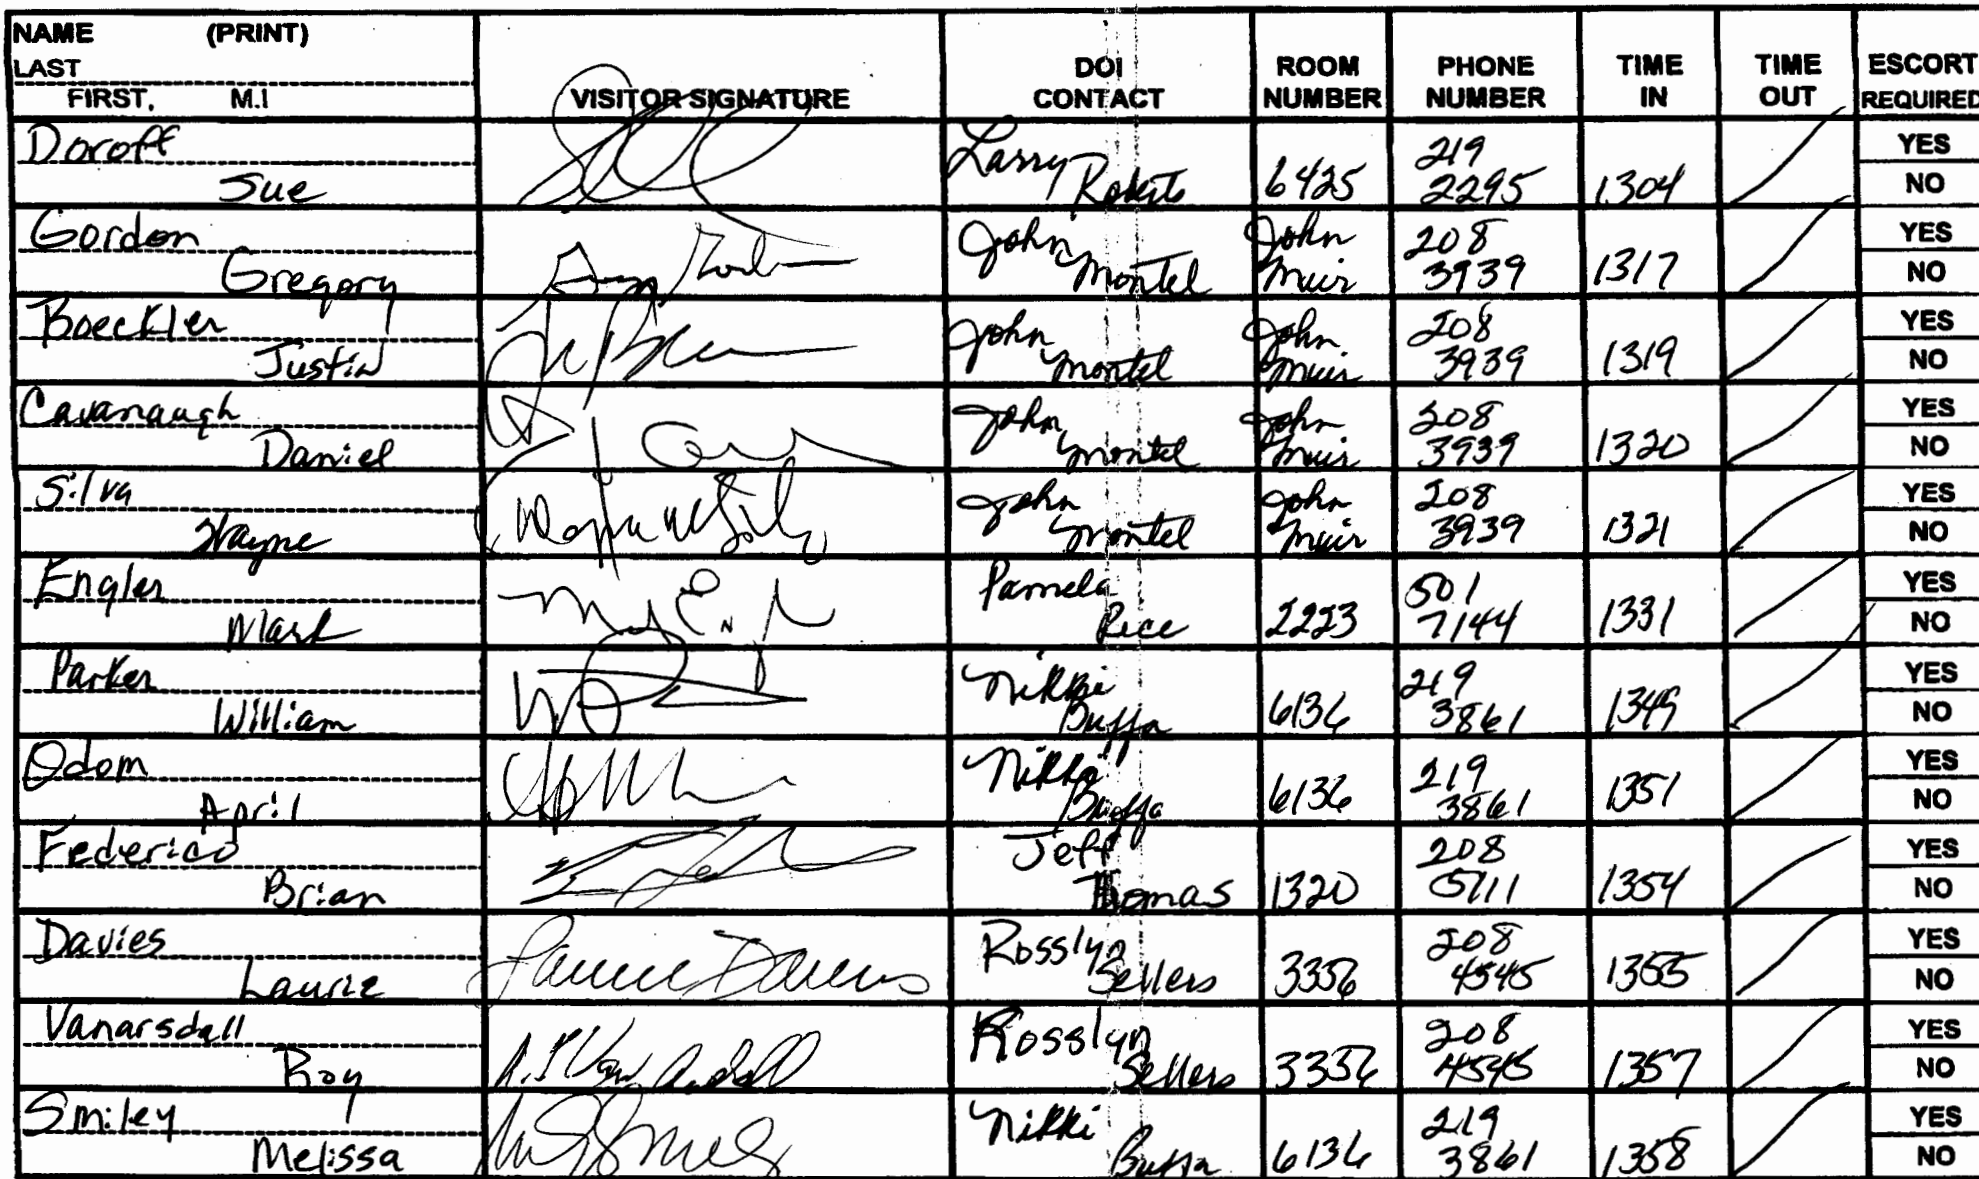 NAME (PRINT) LAST FIRST, M.I VISITOR SIGNATURE DOI CONTACT ROOM NUMBER PHONE NUMBER TIME IN TIME OUT ESCORT REQUIRED
Doroff Sue Larry Roberts 6425 219 2295 1304 YES NO
Gordon Gregory John Montel John Muir 208 3939 1317 YES NO
Boeckler Justin John Montel John Muir 208 3939 1319 YES NO
Cavanaugh Daniel John Montel John Muir 208 3939 1320 YES NO
Silva Wayne John Montel John Muir 208 3939 1321 YES NO
Engler Mark Pamela Rice 2223 501 7144 1331 YES NO
Parker William Nikki Buffa 6136 219 3861 1349 YES NO
Odom April Nikki Buffa 6136 219 3861 1351 YES NO
Federico Brian Jeff Thomas 1320 208 5711 1354 YES NO
Davies Laurie Laurie Davies Rosslyn Sellers 3356 208 4545 1355 YES NO
Vanarsdall Roy Rosslyn Sellers 3356 208 4545 1357 YES NO
Smiley Melissa Nikki Buffa 6136 219 3861 1358 YES NO